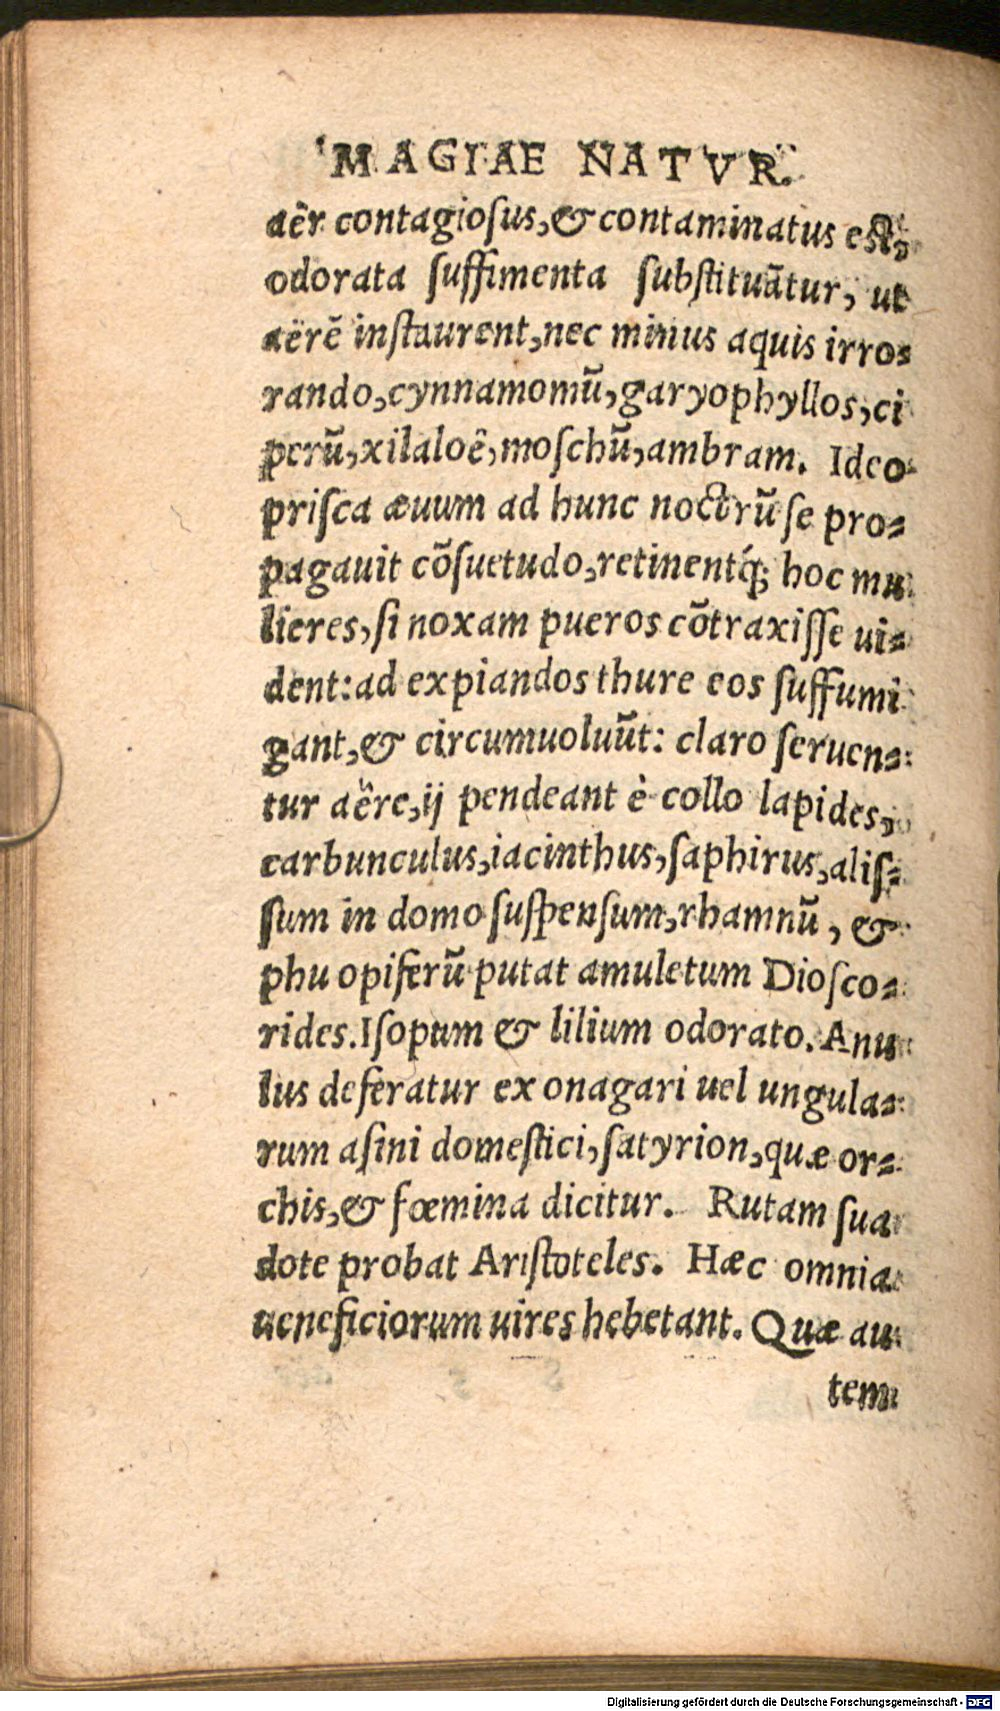 MAGIAE NATVR.
aër contagiosus, & contaminatus est,
odorata suffimenta substituãtur, ut
aërẽ instaurent, nec minus aquis irro=
rando, cynnamomũ, garyophyllos, ci
perũ, xilaloê, moschũ, ambram. Ideo
prisca æuum ad hunc noctrũ se pro=
pagauit cõsuetudo, retinentq́; hoc mu
lieres, si noxam pueros cõtraxisse ui=
dent: ad expiandos thure eos suffumi
gant, & circumuoluũt: claro seruen=
tur aëre, ij pendeant è collo lapides,
carbunculus, iacinthus, saphirus, alis=
sum in domo suspensum, rhamnũ, &
phu opiferũ putat amuletum Diosco=
rides. Isopum & lilium odorato. Anu
lus deferatur ex onagari uel ungula=
rum asini domestici, satyrion, quæ or=
chis, & fœmina dicitur. Rutam sua
dote probat Aristoteles. Hæc omnia
ueneficiorum uires hebetant. Quæ au
tem
Digitalisierung gefördert durch die Deutsche Forschungsgemeinschaft - DFG